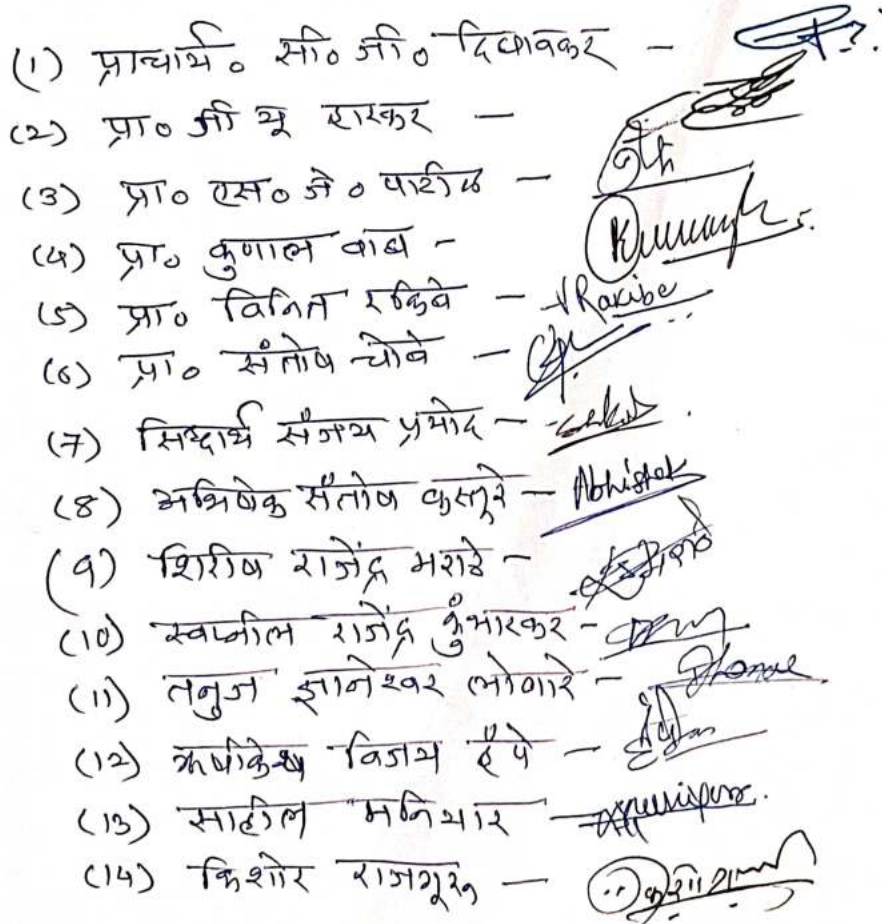 (1) प्राचार्य० सी० जी० दिवाकर -
(2) प्रा० जी यू हास्कर -
(3) प्रा० एस० जे० पाटील -
(4) प्रा० कुणाल वाघ -
(5) प्रा० विनित रकिबे - VRakibe
(6) प्रा० संतोष चौबे -
(7) सिद्धार्थ संजय प्रमोद -
(8) अभिषेक संतोष कस्तूरे - Abhishek
(9) शिरीष राजेंद्र मराठे -
(10) स्वप्नील राजेंद्र कुंभारकर -
(11) तनुज ज्ञानेश्वर लोणारे -
(12) ऋषीकेश विजय इंपे -
(13) साहील मनियार -
(14) किशोर राजगूरू -